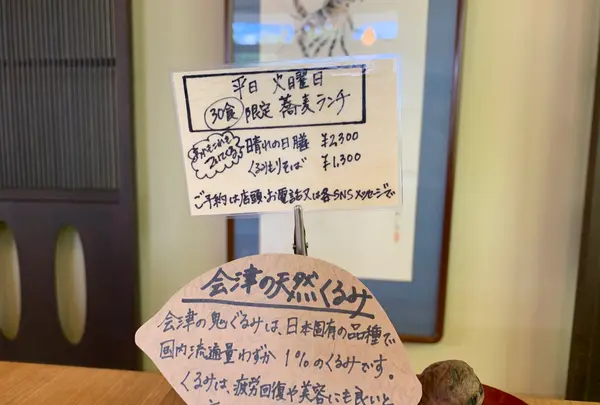 平日 火曜日
30食 限定 蕎麦ランチ
あれもこれも
ついてくる♪
晴れの日膳 ¥2,300
くるみもりそば ¥1,300
ご予約は店頭・お電話又は各SNSメッセージで
会津の天然くるみ
会津の鬼ぐるみは、日本固有の品種で
国内流通量わずか1%のくるみです。
くるみは、疲労回復や美容にも良いと